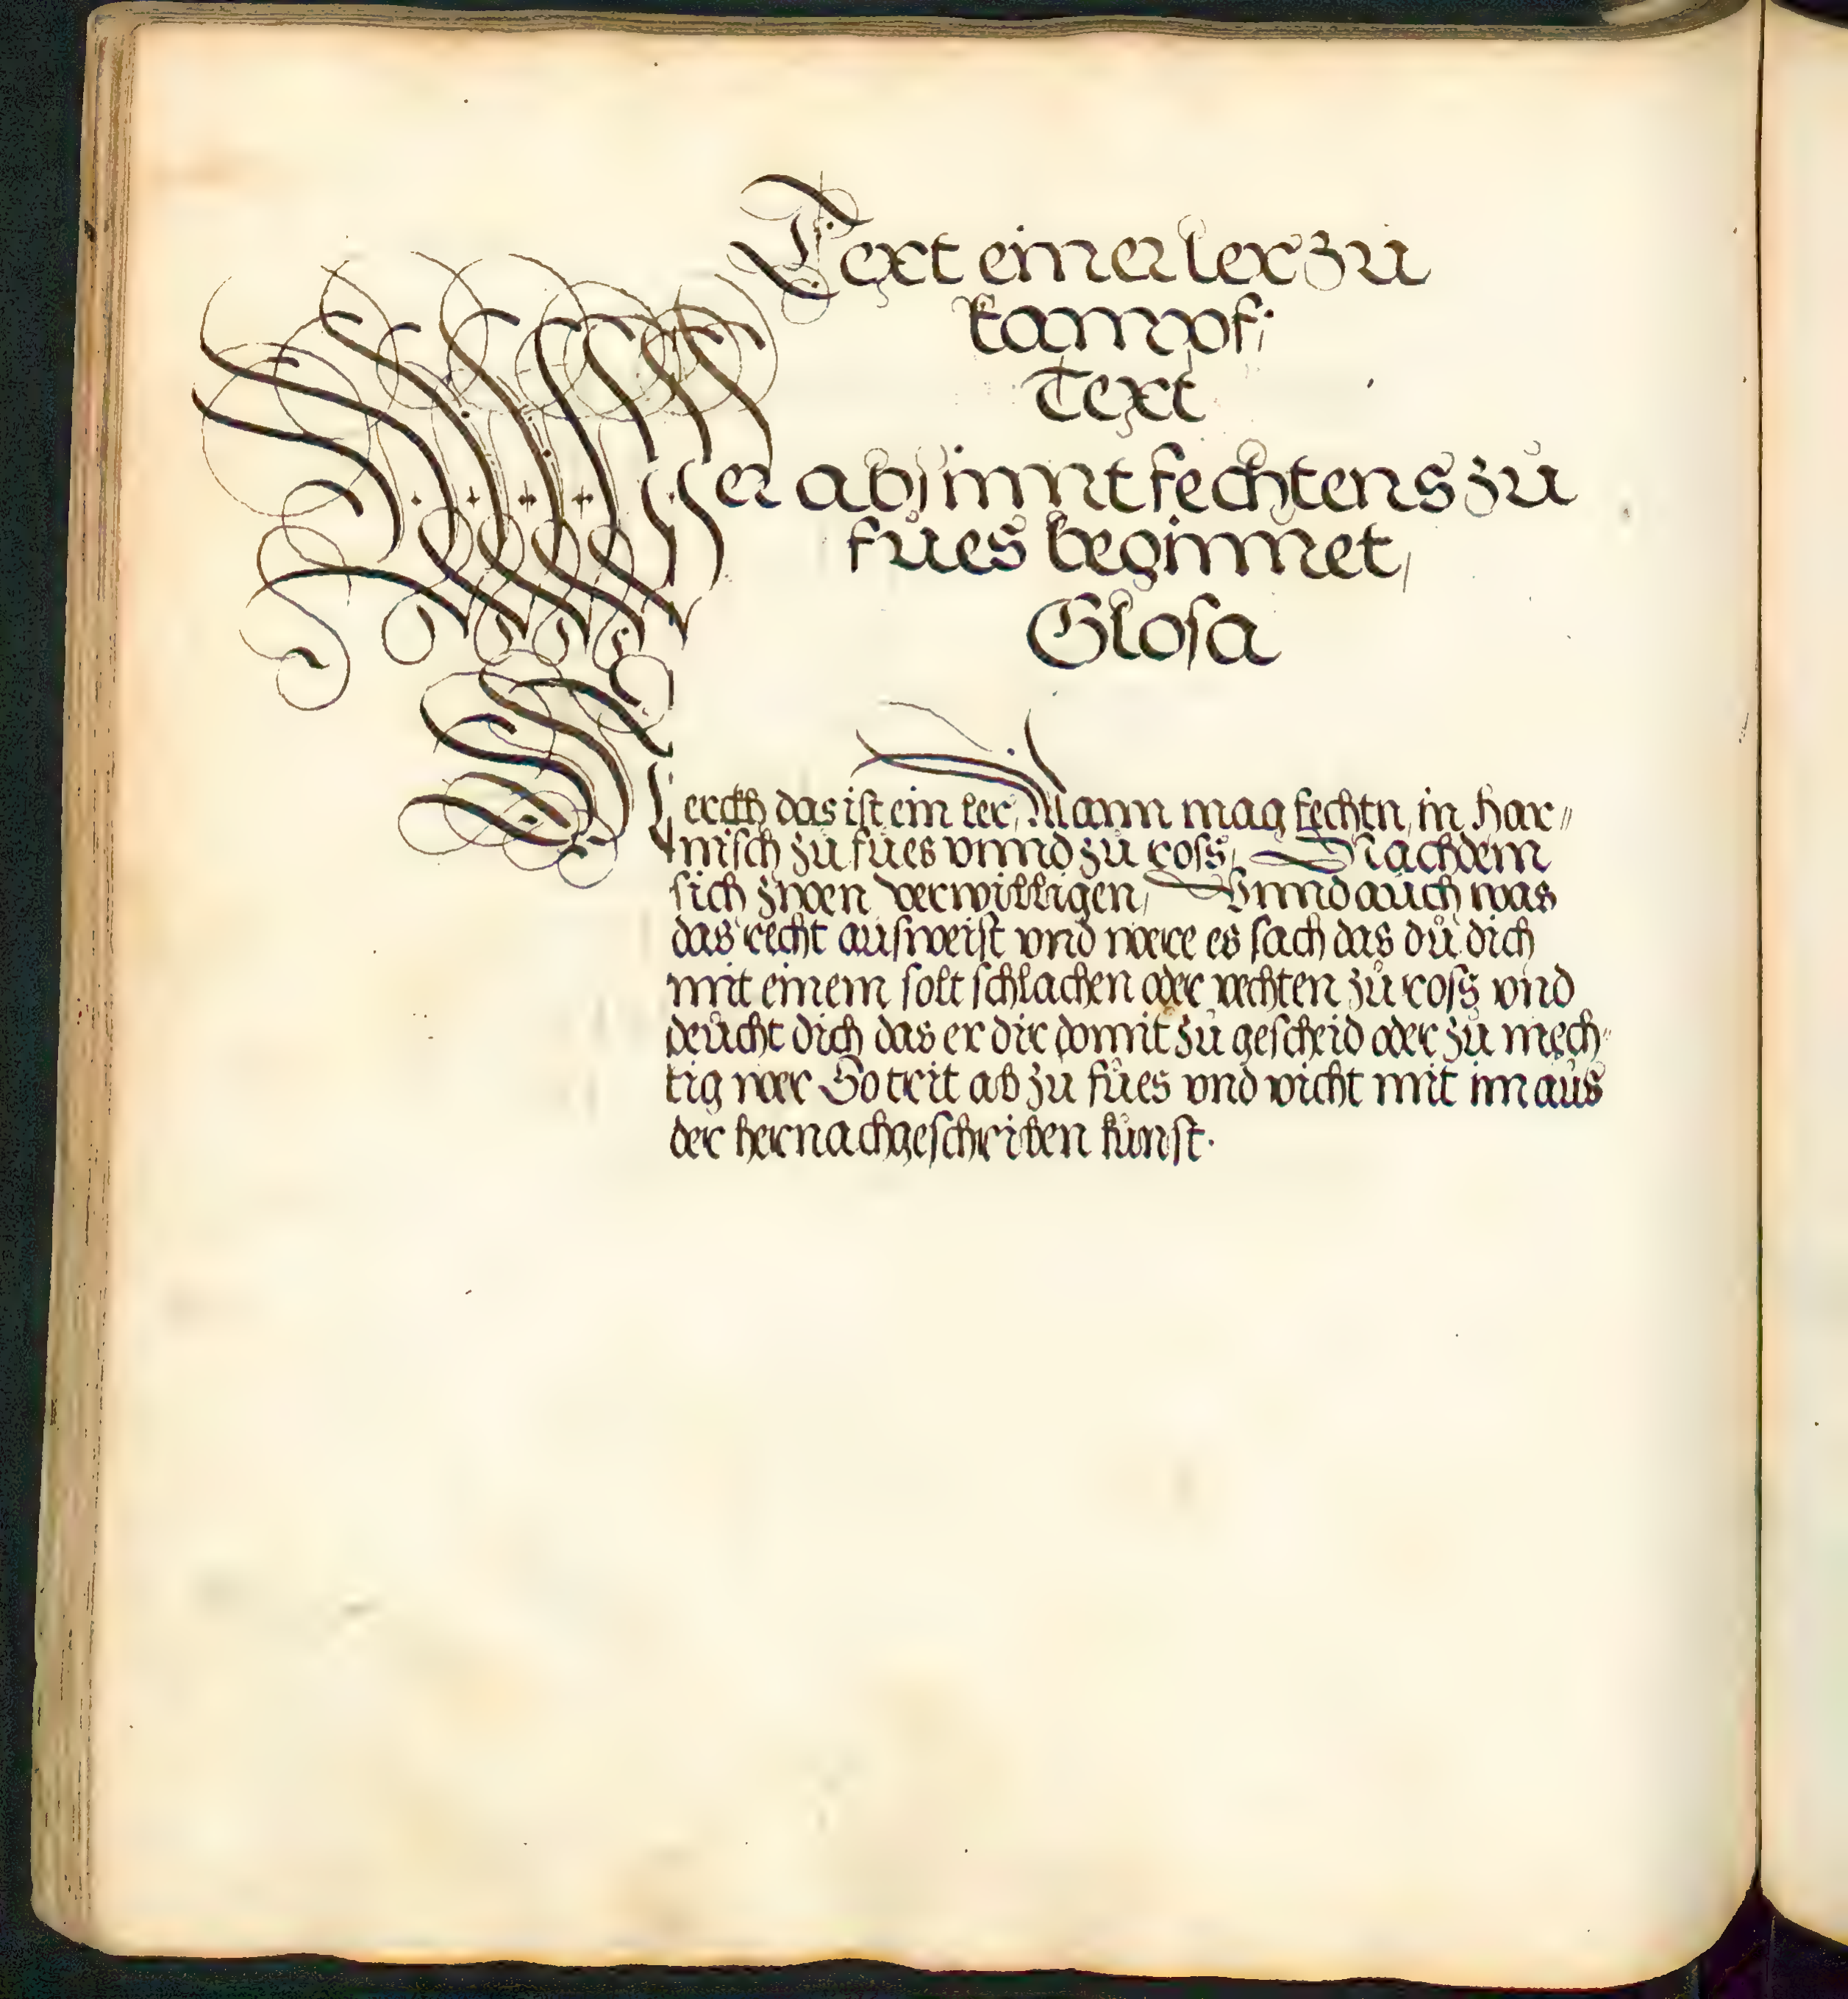 Text einer ler zů
kampf;
Text
Wer absinnt fechtens zů
fůes beginnet,
Glosa
Merckh das ist ein ler, Mann mag fechtn, in har„
nisch zů fůes vnnd zů ross, Nachdem
sich zwen verwilligen, Vnnd auch was
das recht ausweist vnd were es sach das dů dich
mit einem solt schlachen oder vechten zů ross vnd
deůcht dich das er dir domit zů gescheid oder zů mech„
tig wer So trit ab zu fůes vnd vicht mit im aůs
der hernachgeschriben kůnst.